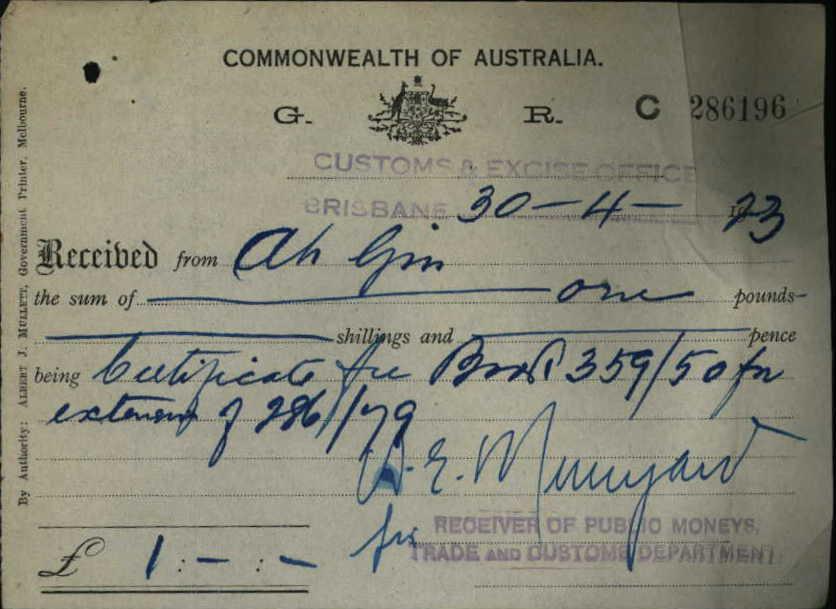 COMMONWEALTH OF AUSTRALIA.
G. R. C 286196
CUSTOMS & EXCISE OFFICE
BRISBANE 30-4- 1923
Received from Ah Gin
the sum of one pounds
shillings and pence
being Certificate fee Book 359/50 for
extension of 286/79
for
RECEIVER OF PUBLIC MONEYS,
TRADE AND CUSTOMS DEPARTMENT
£ 1:-:-
By Authority: ALBERT J. MULLETT, Government Printer, Melbourne.